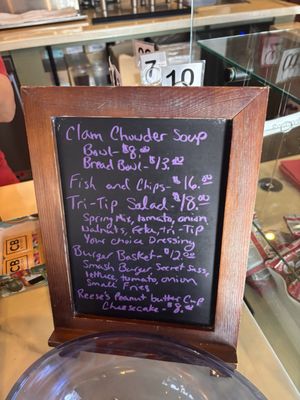 7
10
Clam Chowder Soup
Bowl - $8.00
Bread Bowl - $13.00
Fish and Chips - $16.00
Tri-Tip Salad - $18.00
Spring Mix, tomato, onion
Walnuts, Feta, tri-Tip
Your choice Dressing
Burger Basket - $12.00
Smash Burger Secret Sass,
lettuce tomato, onion
Small Fries
Reese's Peanut butter Cup
Cheesecake - $8.00